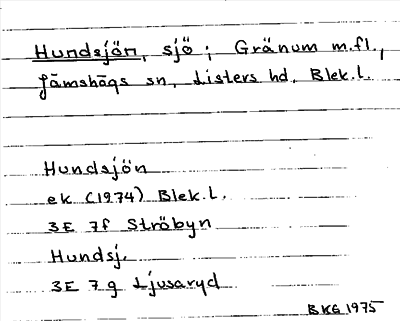 Hundsjön, sjö ; Gränum m.fl.,
Jämshögs sn, Listers hd, Blek.l.
Hundsjön
ek (1974) Blek.l.
3E 7f Ströbyn
Hundsj.
3E 7g Ljusaryd
BKG 1975